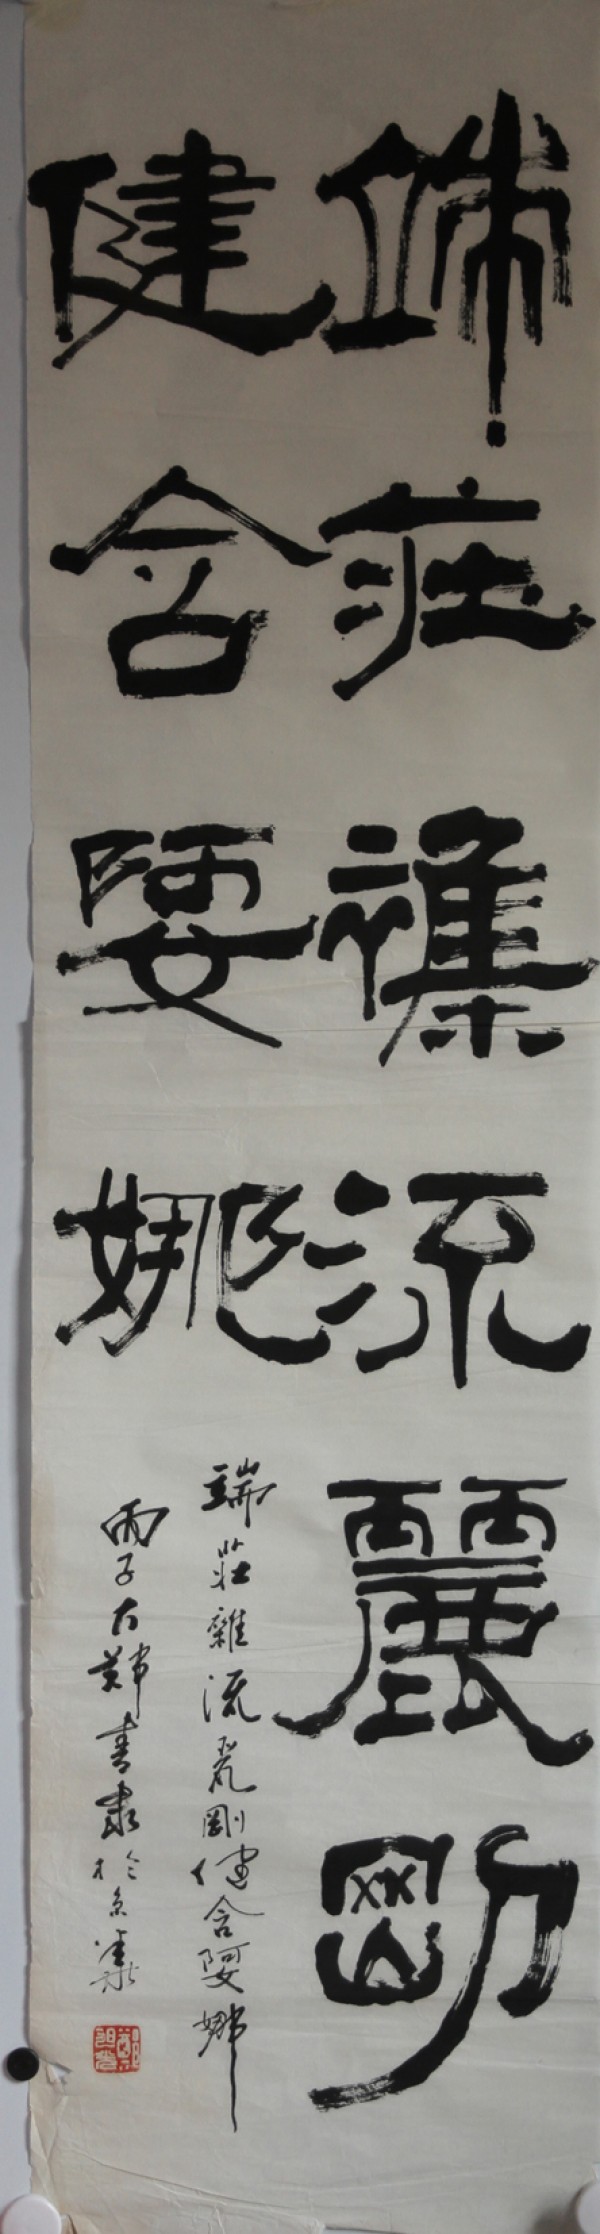 端莊雜流麗剛
健含婀娜
端莊雜流麗剛健含婀娜
丙子 書隶於京華